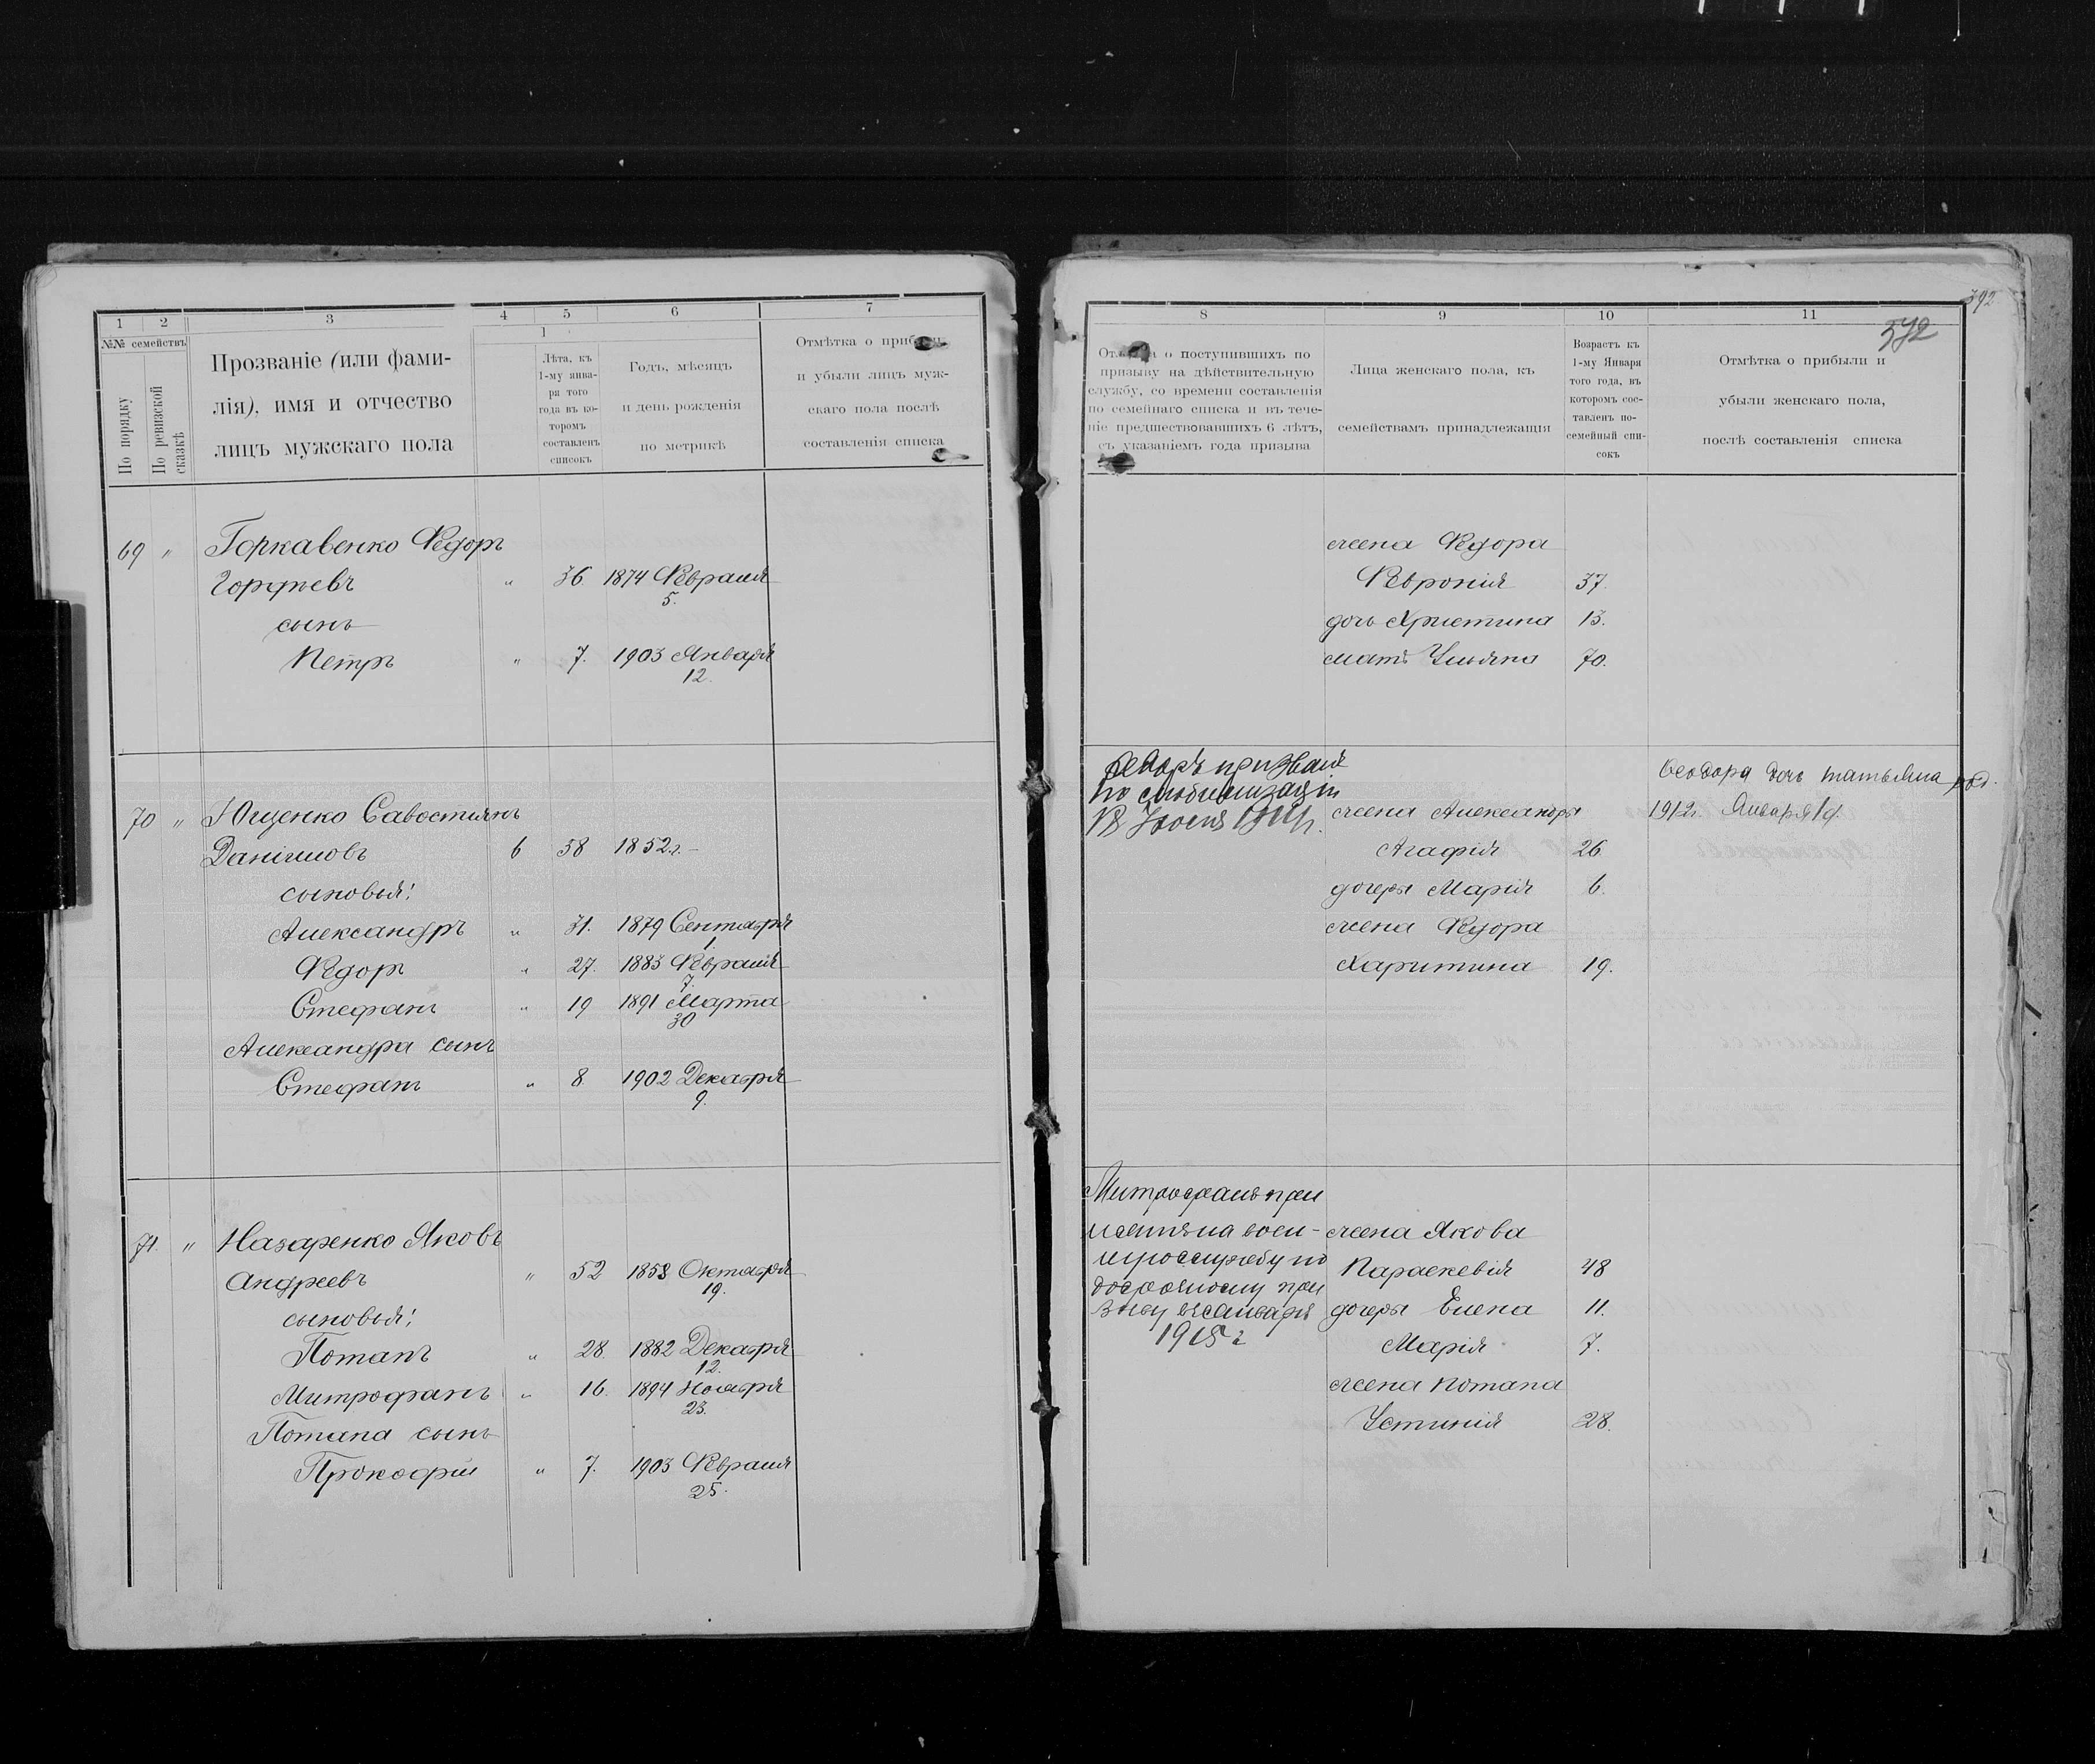 1 2 3 4 5 6 7
№№ семействъ
По порядку
По ревизской сказкѣ
Прозваніе (или фами-
лія), имя и отчество
лицъ мужскаго пола
1
Лѣта, къ
1-му янва-
ря того
года въ ко-
торомъ
составленъ
списокъ
Годъ, мѣсяцъ
и день рожденія
по метрикѣ
Отмѣтка о прибыли
и убыли лицъ муж-
скаго пола послѣ
составленія списка
69 " Горкавенко Федоръ
Гордѣевъ " 36. 1874 Февраля
5.
сынъ
Петръ " 7. 1903 Января
12.
70 " Ющенко Савостиянъ
Даніиловъ 6 58 1852 г.
сыновья:
Александръ " 31. 1879 Сентября
1.
Федоръ " 27. 1883 Февраля
7.
Стефанъ " 19 1891 Марта
30
Александра сынъ
Стефанъ " 8 1902 Декабря
9.
71. " Назаренко Яковъ
Андреевъ " 52 1858 Октября
19.
сыновья:
Потапъ " 28 1882 Декабря
12.
Митрофанъ " 16. 1894 Ноября
23.
Потапа сынъ
Прокофій " 7. 1903 Февраля
25.
392
392
8 9 10 11
Отмѣтка о поступившихъ по
призыву на дѣйствительную
службу, со времени составленія
по семейнаго списка и въ тече-
ніе предшествовавшихъ 6 лѣтъ,
съ указаніемъ года призыва
Лица женскаго пола, къ
семействамъ принадлежащія
Возрастъ къ
1-му Января
того года, въ
которомъ сос-
тавленъ по-
семейный спи-
сокъ
Отмѣтка о прибыли и
убыли женскаго пола,
послѣ составленія списка
жена Федора
Февронія 37.
дочь Христина 13.
мать Ульяна 70.
Федоръ призванъ
по мобилизаціи
18 Іюля 1914 г.
Феодора дочь Татьяна род.
1912 г. Января
жена Александра
Агафія 26
дочери Марія 6.
жена Федора
Харитина 19.
Митрофанъ при
нятъ на воен-
ную службу по
досрочному при
зыву въ январѣ
1915 г
жена Якова
Параскевія 48
дочери Елена 11.
Марія 7.
жена Потапа
Устинія 28.